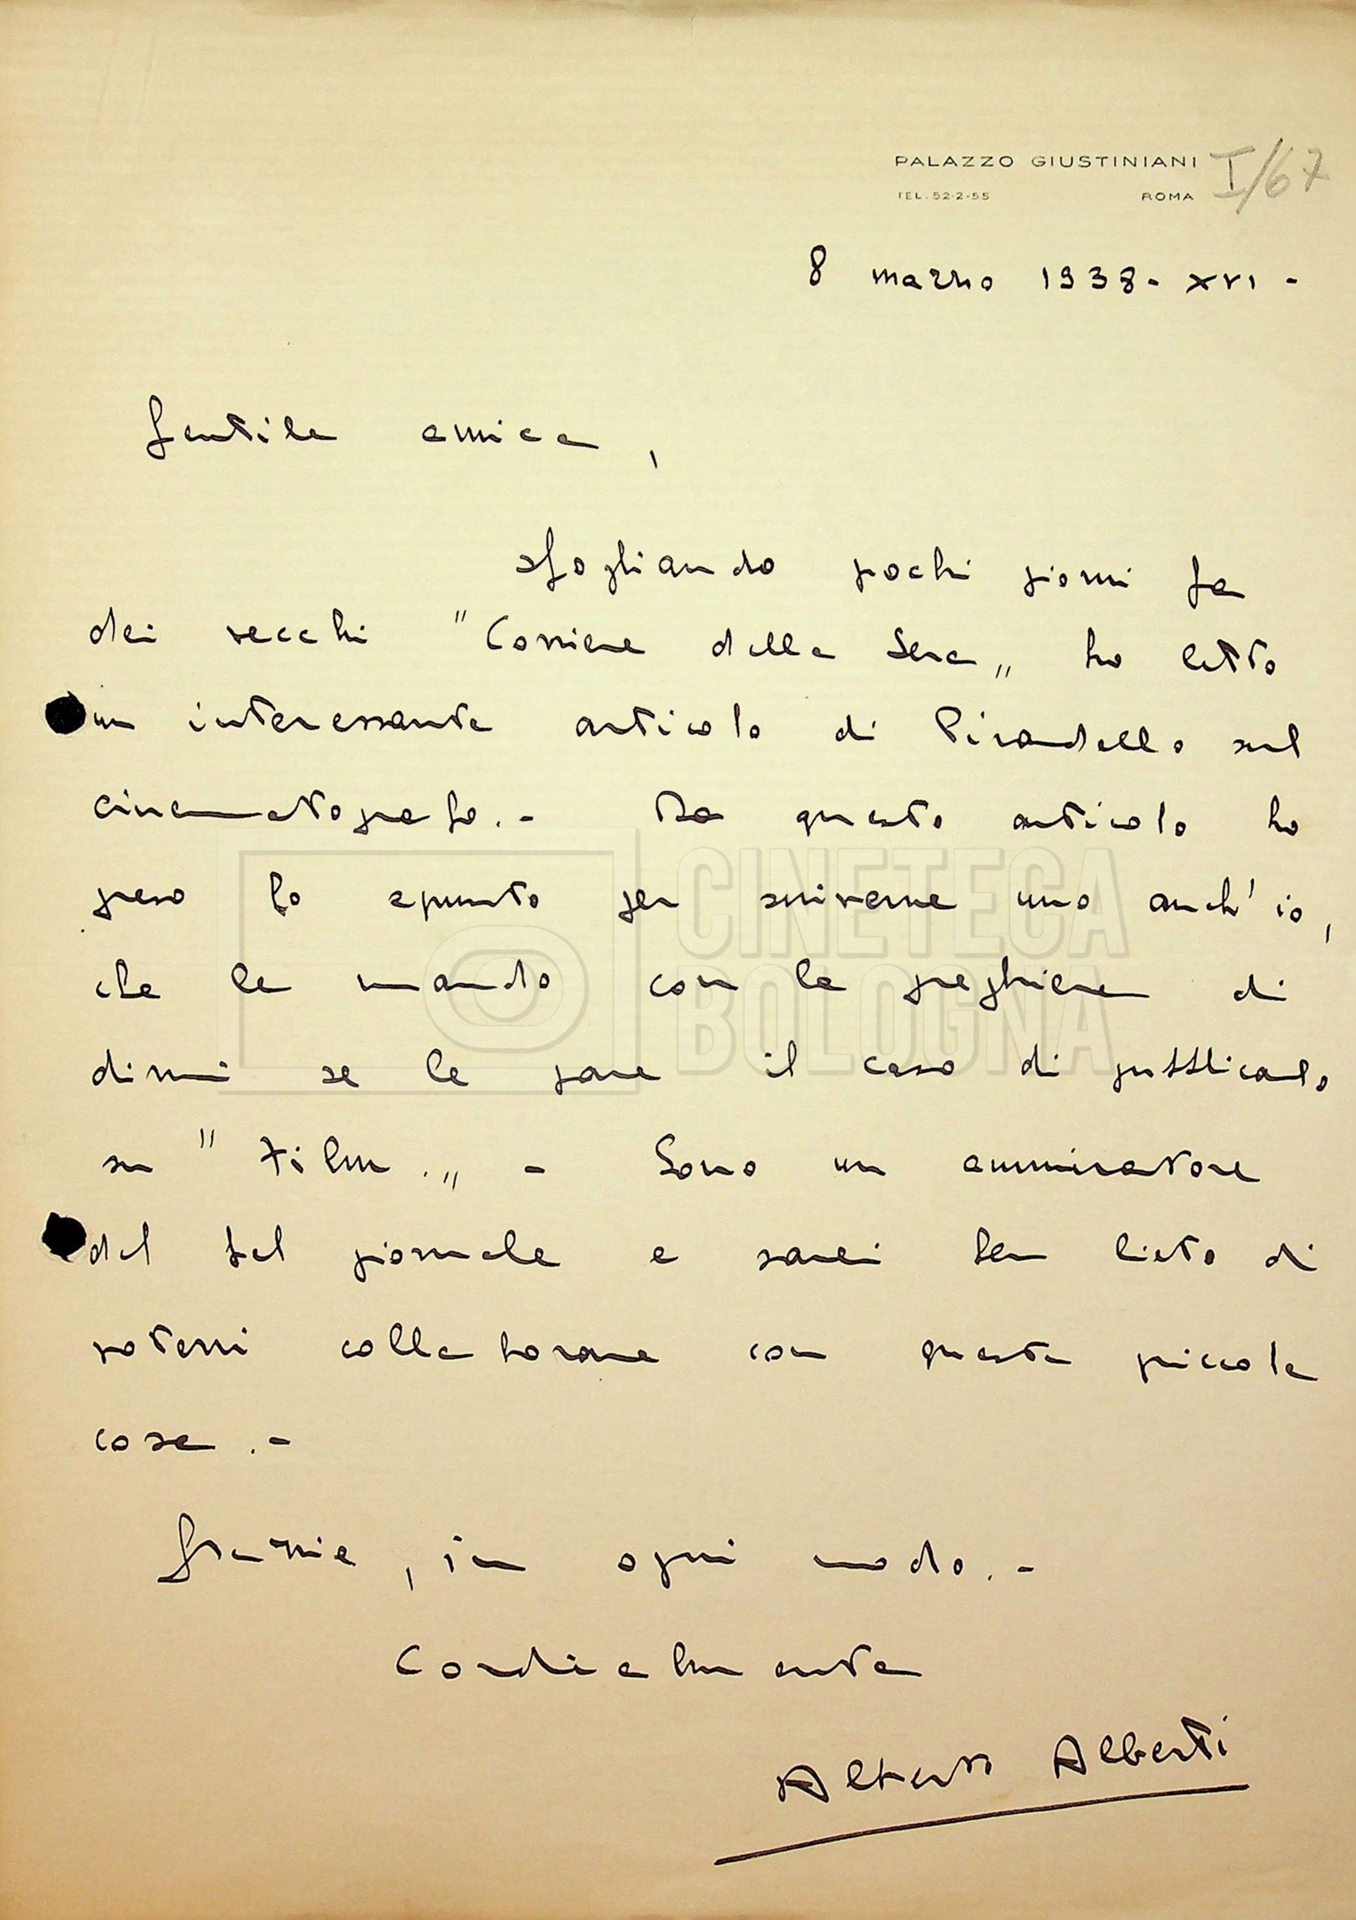 PALAZZO GIUSTINIANI I/67
TEL. 52-2-55 ROMA
8 marzo 1938 - XVI -
Gentile amica,
sfogliando pochi giorni fa
dei vecchi "Corriere della Sera„ ho letto
un interessante articolo di Pirandello sul
cinematografo. - Da questo articolo ho
preso lo spunto per scriverne uno anch'io,
che le mando con la preghiera di
dirmi se le pare il caso di pubblicarlo
su "Film.„ - Sono un ammiratore
del bel giornale e sarei ben lieto di
potervi collaborare con queste piccole
cose. -
Grazie, in ogni modo. -
Cordialmente
Alberto Alberti
CINETECA
BOLOGNA